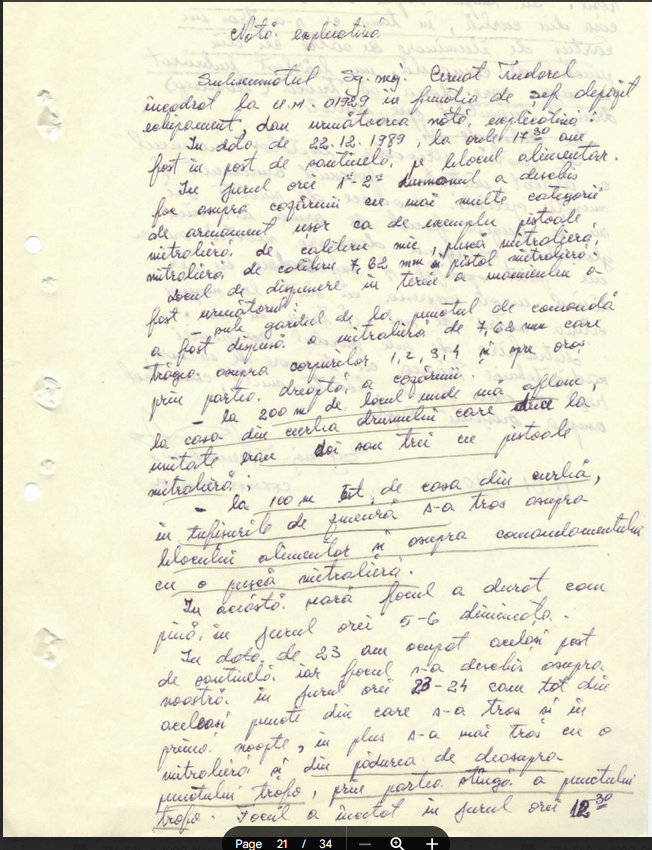 Notă explicativă
Subsemnatul Sg. maj. Cernat Tudorel
încadrat la U.M. 01929 în funcția de șef depozit
echipament dau următoarea notă explicativă:
În data de 22.12.1989, la orele 17³⁰ am
fost în post de santinelă, pe blocul alimentar.
În jurul orei 1-2 dușmanul a deschis
foc asupra cazărmii cu mai multe categorii
de armament ușor ca de exemplu pistoale
mitralieră de calibru mic, pușcă mitralieră,
mitralieră de calibru 7,62 mm și pistol mitralieră.
Locul de dispunere în teren a inamicului a
fost următorul:
- gardul de la punctul de comandă
a fost dispusă o mitralieră de 7,62 mm care
trăgea asupra corpurilor 1, 2, 3, 4 și spre oraș
prin partea dreaptă a cazărmii.
- la 200 m de locul unde mă aflam,
la casa din curba drumului care duce la
unitate erau doi sau trei cu pistoale
mitralieră;
- la 100 m Est, de casa din curbă,
în tufișurile de s-a tras asupra
blocului alimentar și asupra comandamentului
cu o pușcă mitralieră.
În această seară focul a durat cam
pînă în jurul orei 5-6 dimineața.
În data de 23 am ocupat același post
de santinelă iar focul s-a deschis asupra
noastră în jurul orei 23-24 cam tot din
aceleași puncte din care s-a tras și în
prima noapte, în plus s-a mai tras cu o
mitralieră și din pădurea de deasupra
punctului trafo, prin partea stîngă a punctului
trafo. Focul a încetat în jurul orei 12³⁰
Page 21 / 34